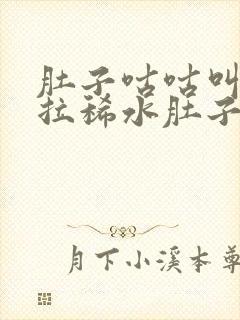 肚子咕咕叫
拉稀水肚子
月下小溪本尊